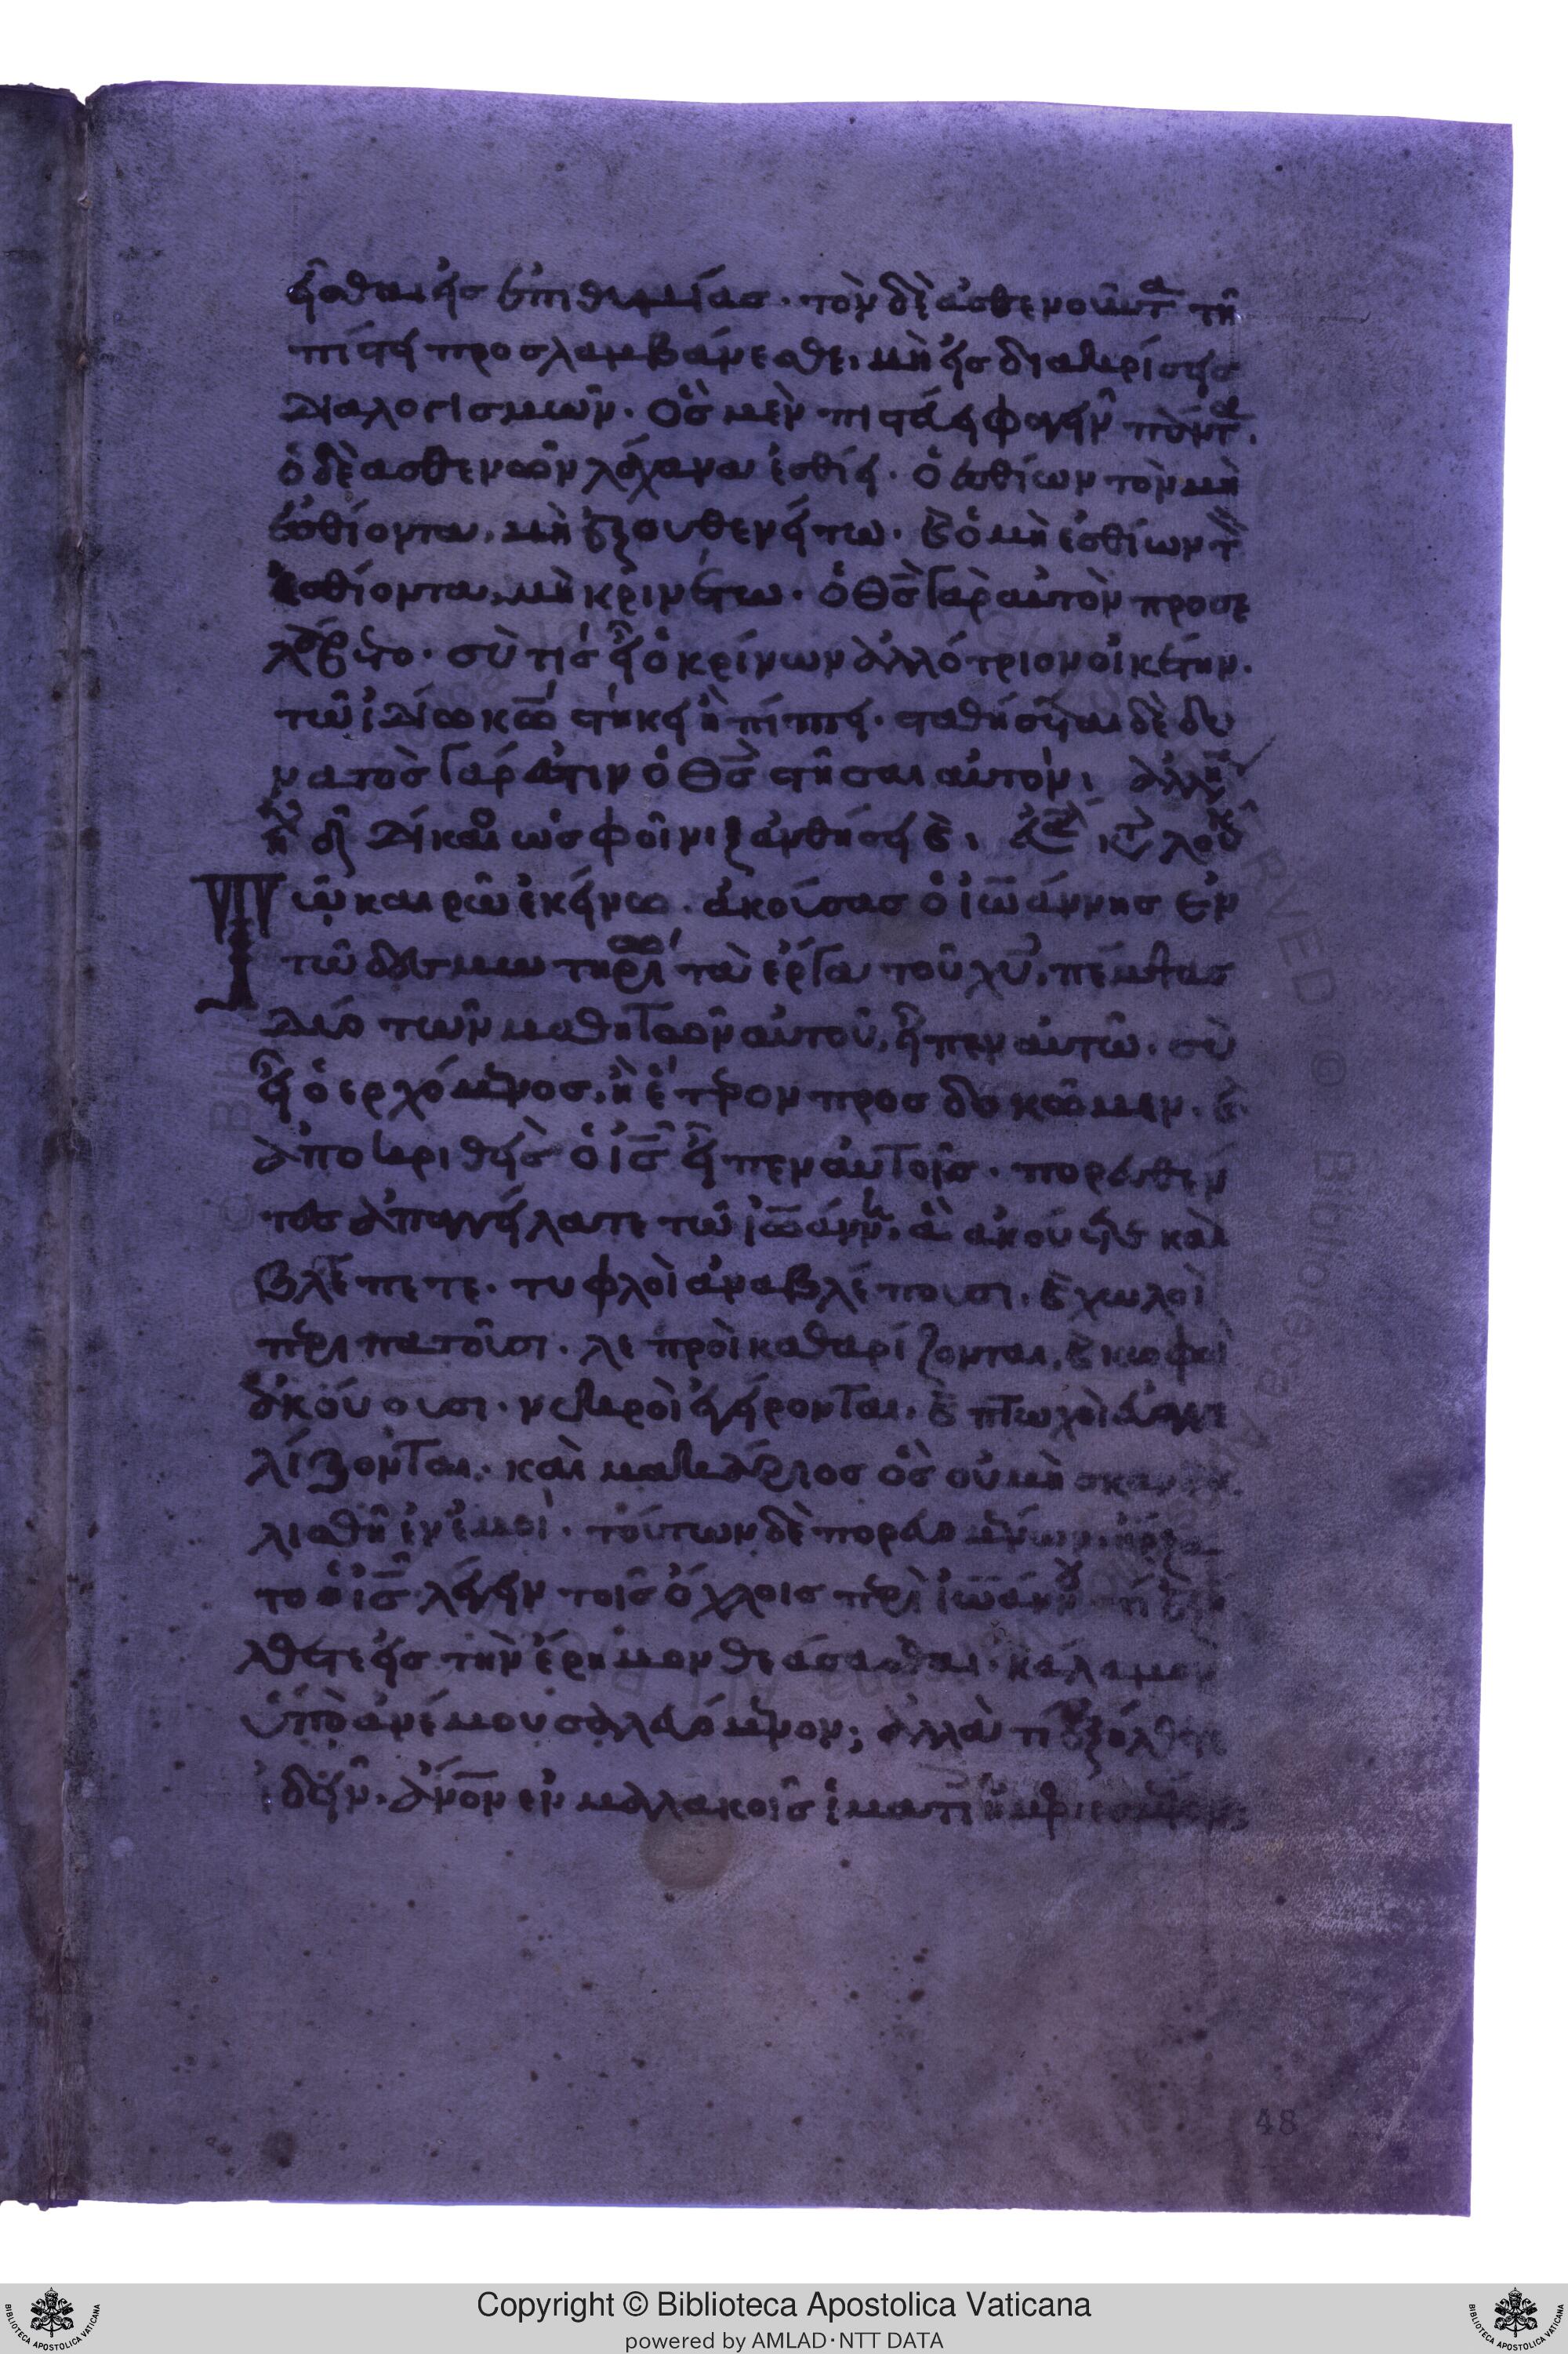 εῖσθαι εἰς ἐπιθυμίας· τὸν δὲ ἀσθενοῦντα τῆ
πίστει προσλαμβάνεσθε, μὴ εἰς διακρίσεις
διαλογισμῶν. ὃς μὲν πιστεύει φαγεῖν πάντα.
ὁ δὲ ἀσθενῶν λάχανα ἐσθίει. ὁ ἐσθίων τὸν μὴ
ἐσθίοντα, μὴ ἐξουθενείτω. καὶ ὁ μὴ ἐσθίων τὸν
ἐσθίοντα, μὴ κρινέτω. ὁ θς γὰρ αὐτὸν προσε
λάβετο. σὺ τίς εἶ ὁ κρίνων ἀλλότριον οἰκέτην.
τῶ ἰδίω κω στήκει ἢ πίπτει. σταθήσεται δὲ δυ
νατὸς γάρ ἐστιν ὁ θς στῆσαι αὐτόν.
δίκαιος ὡς φοῖνιξ ἀνθήσει καὶ λουκ
Τῶ καιρῶ ἐκείνω. ἀκούσας ὁ ἰωάννης ἐν
τῶ δεσμωτηρίω τὰ ἔργα τοῦ χυ, πέμψας
δύο τῶν μαθητῶν αὐτοῦ, εἶπεν αὐτῶ. σὺ
εἶ ὁ ἐρχόμενος, ἢ ἕτερον προσδοκῶμεν. καὶ
ἀποκριθεὶς ὁ ις εἶπεν αὐτοῖς. πορευθέν
τες ἀπαγγείλατε τῶ ἰωάννη, ἃ ἀκούετε καὶ
βλέπετε. τυφλοὶ ἀναβλέπουσι. καὶ χωλοὶ
περιπατοῦσι. λεπροὶ καθαρίζονται, καὶ κωφοὶ
ἀκούουσι. νεκροὶ ἐγείρονται. καὶ πτωχοὶ εὐαγγε
λίζονται. καὶ μακάριος ὃς οὐ μὴ σκανδα
λισθῆ ἐν ἐμοί. τούτων δὲ πορευομένων, ἤρξα
το ὁ ις λέγειν τοῖς ὄχλοις περὶ ἰωάννου τί ἐξή
λθετε εἰς τὴν ἔρημον θεάσασθαι. κάλαμον
ὑπὸ ἀνέμου σαλευόμενον; ἀλλὰ τί ἐξήλθετε
ἰδεῖν. ἄνον ἐν μαλακοῖς ἱματίοις ἠμφιεσμένον;
48
Copyright © Biblioteca Apostolica Vaticana
powered by AMLAD·NTT DATA